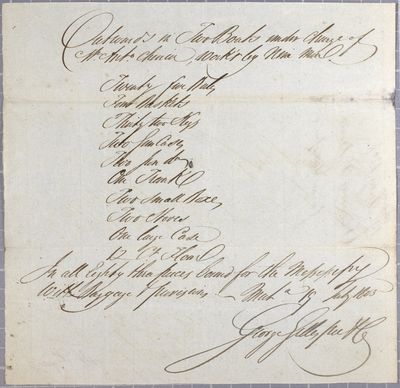 Outwards in Two Boats under charge of
Mr Antn work'd by Nine Men.
Twenty five Bales
Four Baskets
Thirty two Kegs
Two Gun Cases
Two
One Trunk
Two Small Boxes
Two Stoves
One large Case
Flour
In all Eighty three pieces bound for the Mississippy
With Baggage & provisions — July 1803
George Gillespie & Co